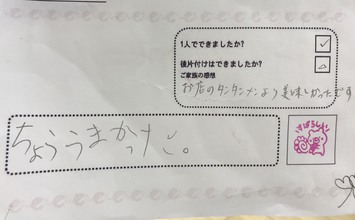 1人でできましたか?
後片付けはできましたか?
ご家族の感想
お店のタンタンメンより美味しかったです
ちょううまかった。